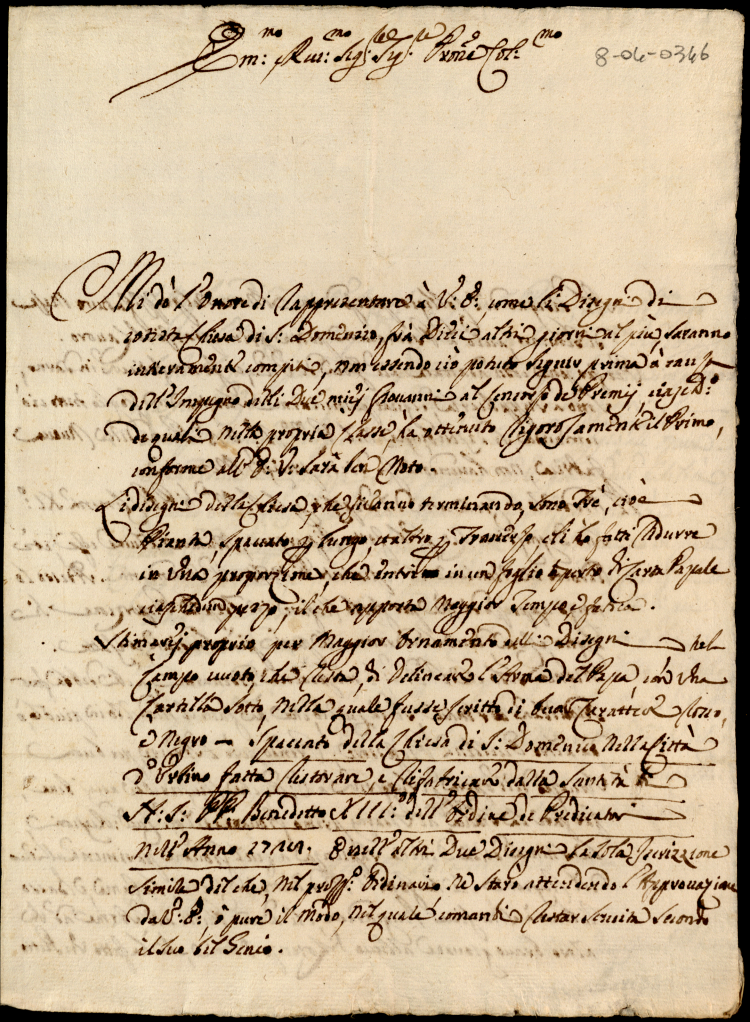 Em:mo Rev:mo Sig:re Sig:re Prone Col:mo
8-04-0346
Mi dò l'onore di rappresentare à V: E: come li Disegni di
cotesta Chiesa di S: Domenico, frà Dieci altri giorni al più saranno
interamente compiti, non essendo ciò potuto seguire prima à causa
dell'Impegno delli Due miei Giovanni al Concorso de Premij
de quali nella propria Classe, hà ottenuto rigorosamente il Primo,
conforme all'E: V: sarà ben Noto.
Li disegni della Chiesa, che si vanno terminando, sono Trè, cioè
Pianta, spaccato per lungo, e l'altro per Traverso, e li hò fatti ridurre
in una proporzione, che entrino in un foglio aperto di Carta Papale
ciascheduno pezzo, il che apporta Maggior Tempo e fatica.
Stimerei proprio per Maggior Ornamento delli Disegni nel
Campo vuoto che resta, di delineare l'Arma del Papa con una
Cartella sotto, nella quale fusse scritto di buon Carattere Rosso,
e Negro - Spaccato della Chiesa di S: Domenico nella Città
d'Urbino fatta restorare, e rifabricare dalla Santità di
N: S: PP: Benedetto XIII: dell'Ordine de Predicatori
nell'Anno 1727. E nell'altri Due Disegni la sola Iscrizzione
simile del che, nel pross:o ordinario ne starò attendendo l'Approvazione
da V: E: ò pure il Modo, nel quale comandi restar servita secondo
il suo bel Genio.